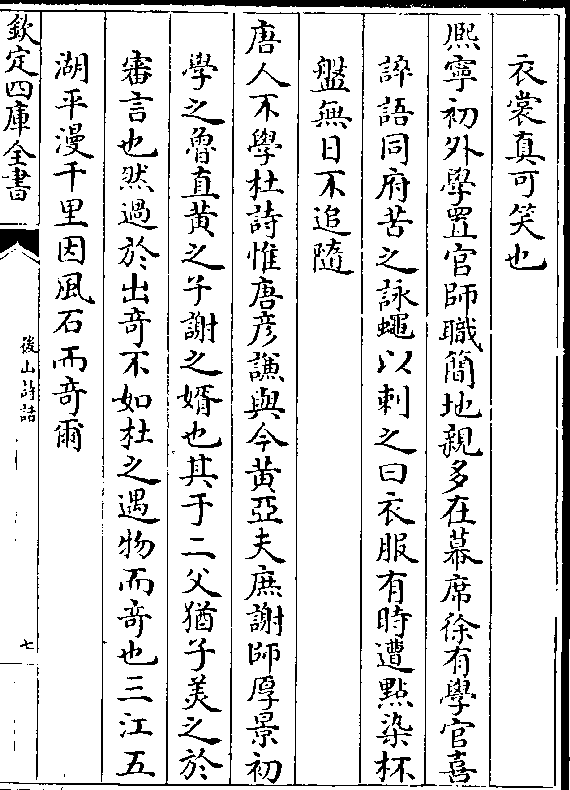 衣裳真可笑也
熈寧初外學置官師職簡地親多在幕席徐有學官喜
誶語同府苦之詠蠅以刺之曰衣服有時遭點染杯
盤無日不追隨
唐人不學杜詩惟唐彦謙與今黄亞夫庶謝師厚景初
學之魯直黄之子謝之婿也其于二父猶子美之於
審言也然過於出竒不如杜之遇物而竒也三江五
湖平漫千里因風石而竒爾
欽定四庫全書
後山詩話
七